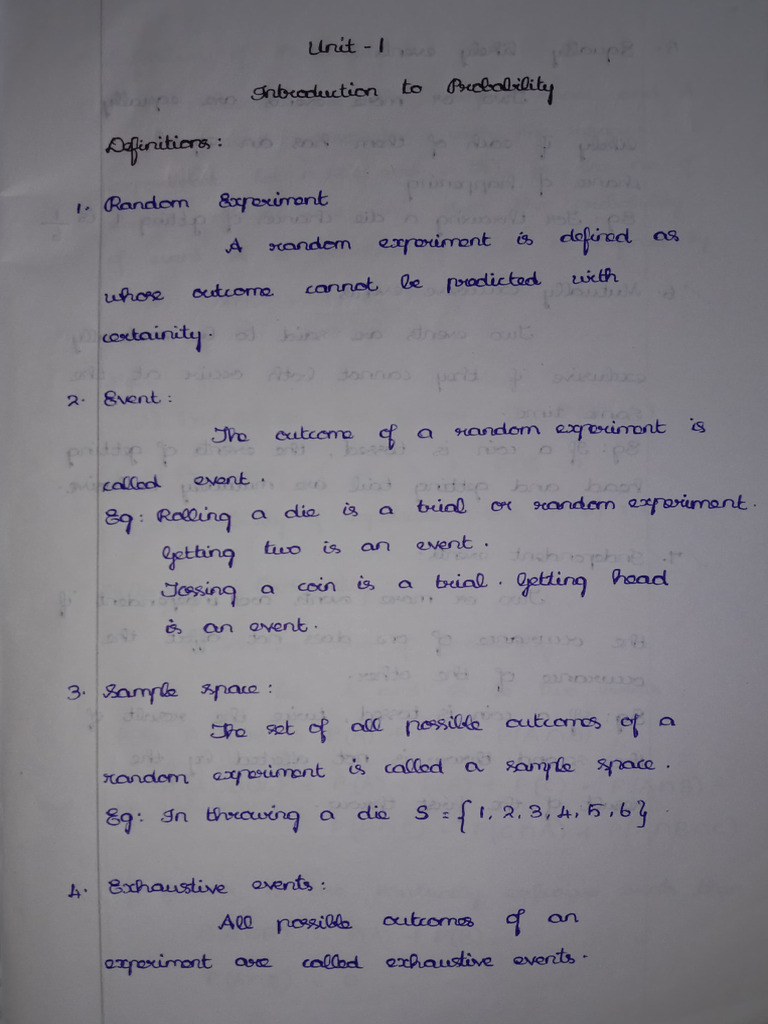 Unit - 1
Introduction to Probability
Definitions:
1. Random Experiment
A random experiment is defined as
whose outcome cannot be predicted with
certainity.
2. Event:
The outcome of a random experiment is
called event.
Eg: Rolling a die is a trial or random experiment.
Getting two is an event.
Tossing a coin is a trial. Getting head
is an event.
3. Sample space:
The set of all possible outcomes of a
random experiment is called a sample space.
Eg: In throwing a die S = {1, 2, 3, 4, 5, 6}
4. Exhaustive events:
All possible outcomes of an
experiment are called exhaustive events.